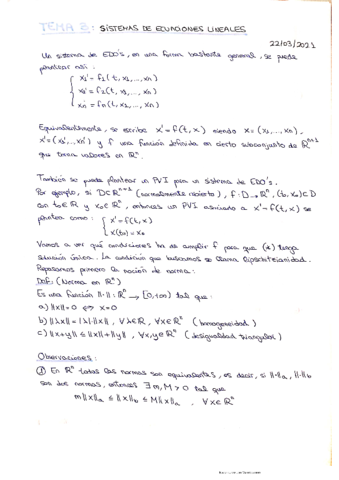 TEMA 3: SISTEMAS DE ECUACIONES LINEALES
22/03/2021
Un sistema de EDO's, en una forma bastante general, se puede
plantear así:
x₁' = f₁(t, x₁, ..., xₙ)
x₂' = f₂(t, x₁, ..., xₙ)
xₙ' = fₙ(t, x₁, ..., xₙ)
Equivalentemente, se escribe x' = f(t, x) siendo x = (x₁, ..., xₙ),
x' = (x₁', ..., xₙ') y f una función definida en cierto subconjunto de ℝⁿ⁺¹
que toma valores en ℝⁿ.
También se puede plantear un PVI para un sistema de EDO's.
Por ejemplo, si D⊆ℝⁿ⁺¹ (normalmente abierto), f: D→ℝⁿ, (t₀, x₀)∈D
con t₀∈ℝ y x₀∈ℝⁿ, entonces un PVI asociado a x' = f(t, x) se
plantea como: { x' = f(t, x)
x(t₀) = x₀
Vamos a ver qué condiciones ha de cumplir f para que (*) tenga
solución única. La condición que buscamos se llama lipschitzianidad.
Repasamos primero la noción de norma:
Def: (Norma en ℝⁿ)
Es una función ‖·‖: ℝⁿ → [0, +∞) tal que:
a) ‖x‖ = 0 ⟺ x = 0
b) ‖λx‖ = |λ|·‖x‖, ∀λ∈ℝ, ∀x∈ℝⁿ (homogeneidad)
c) ‖x+y‖ ≤ ‖x‖ + ‖y‖, ∀x,y∈ℝⁿ (desigualdad triangular)
Observaciones:
① En ℝⁿ todas las normas son equivalentes, es decir, si ‖·‖ₐ, ‖·‖_b
son dos normas, entonces ∃ m, M > 0 tal que
m‖x‖ₐ ≤ ‖x‖_b ≤ M‖x‖ₐ, ∀x∈ℝⁿ